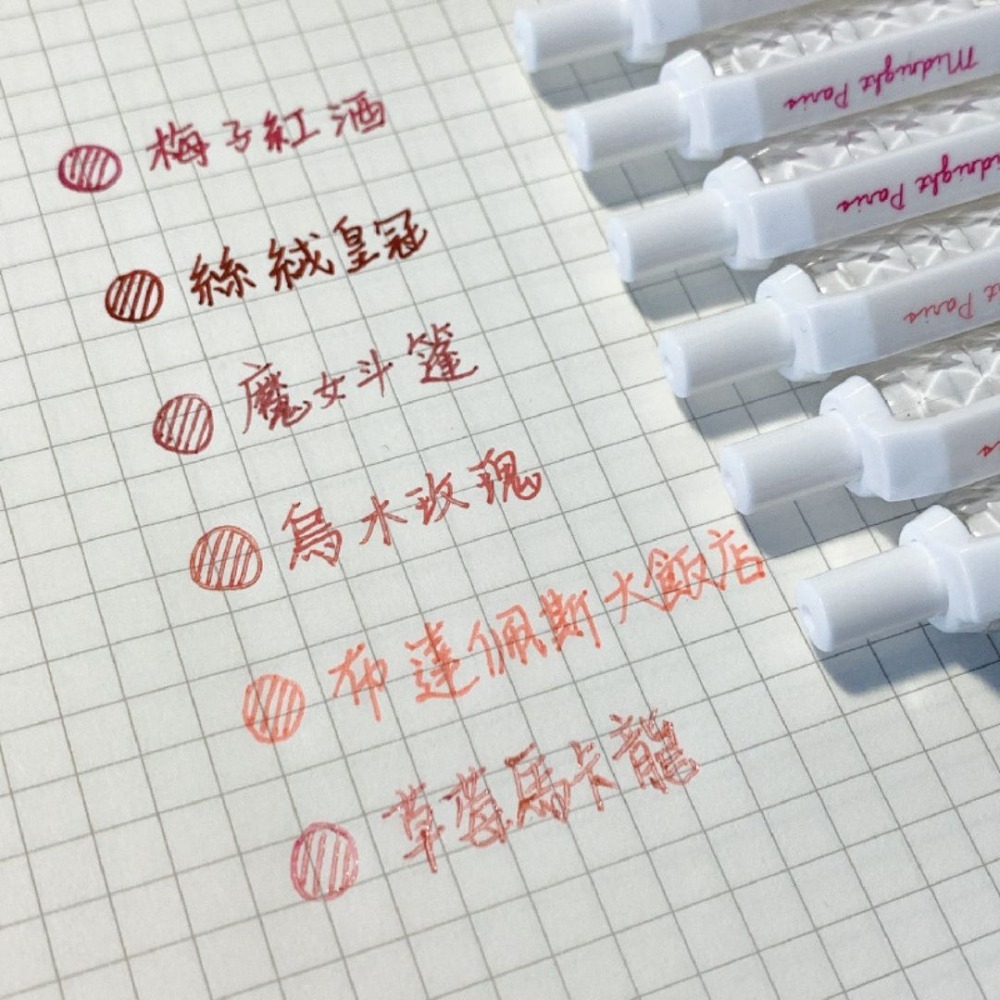 梅子紅酒
絲絨皇冠
魔女斗篷
烏水玫瑰
布達佩斯大飯店
草莓馬卡龍
Midnight Paris
Midnight Paris
Paris